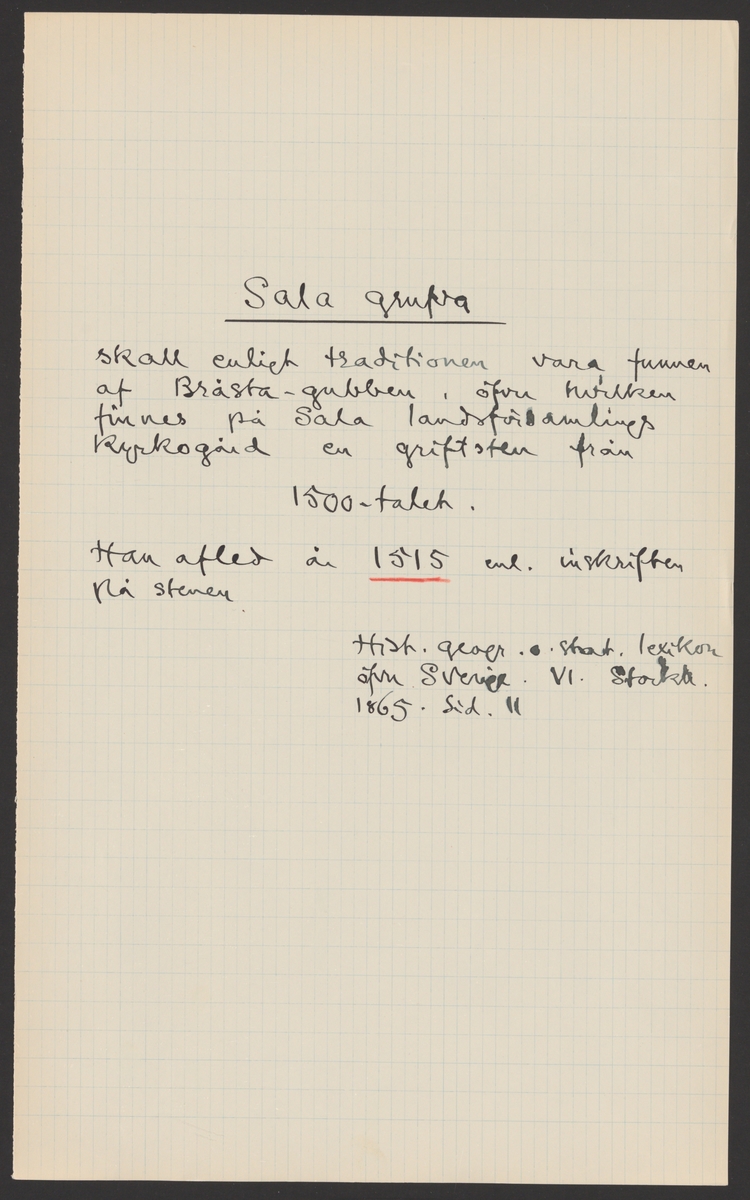 Sala grufva
skall enligt traditionen vara funnen
af Bråsta-gubben, öfver hvilken
finnes på Sala landsförsamlings
Kyrkogård en griftsten från
1500-talet.
Han afled år 1515 enl. inskriften
på stenen
Hist. geogr. o. stat. lexikon
öfver Sverige. VI. Stockh.
1865. Sid. 11